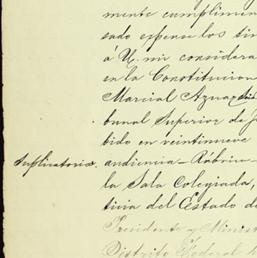 mente cumplimen
sado espense los sin
á U. mi considera
en la Constitucion
Marcial Aznar
bunal Superior de J
bido en veintinueve
Suplicatoria. audiencia - Rúbric
la Sala Colegiada,
ticia del Estado de
Presidente y Minis
Distrito Federal